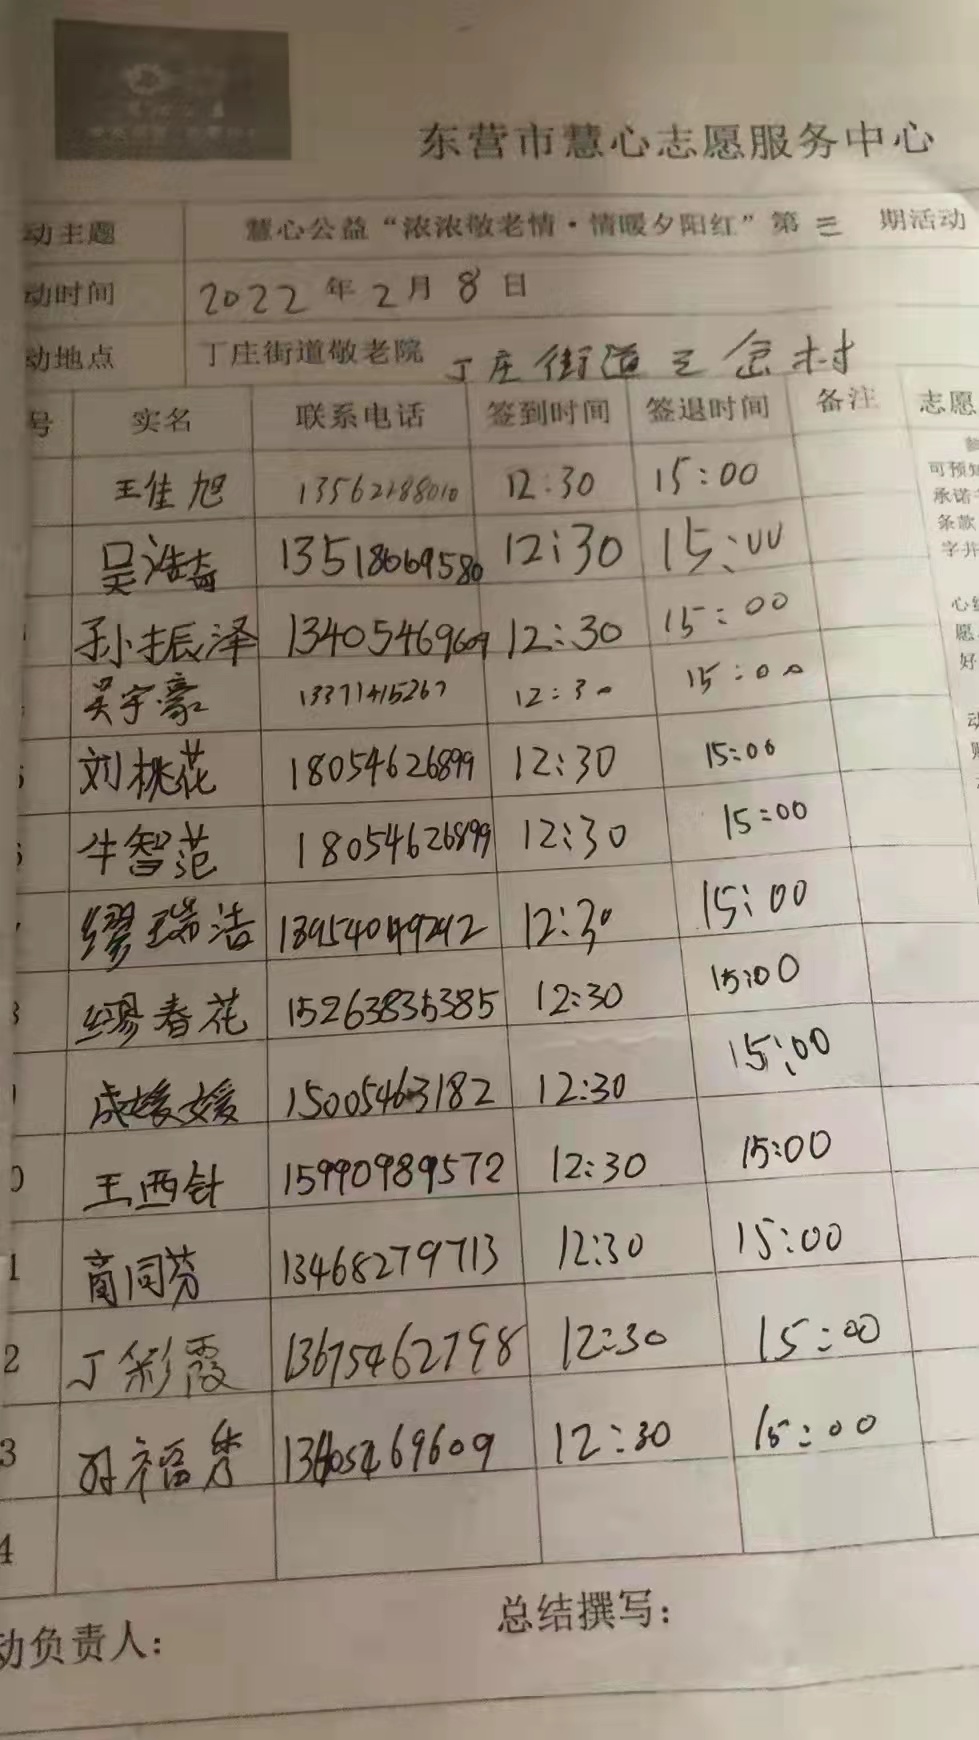 东营市慧心志愿服务中心
动主题 慧心公益“浓浓敬老情·情暖夕阳红”第三期活动
动时间 2022年2月8日
动地点 丁庄街道敬老院 丁庄街道王岔村
号 实名 联系电话 签到时间 签退时间 备注 志愿
王佳旭 12:30 15:00
吴浩奇 13518669580 12:30 15:00
孙振泽 13405469609 12:30 15:00
吴宇豪 13371415267 12:30 15:00
刘桃花 18054626899 12:30 15:00
牛智范 18054626899 12:30 15:00
缪瑞洁 12:30 15:00
缪春花 15263835385 12:30 15:00
成媛媛 15005463182 12:30 15:00
0 王西针 15990989572 12:30 15:00
1 商同芬 13468279713 12:30 15:00
2 丁彩霞 13675462798 12:30 15:00
3 孙福秀 13405469609 12:30 15:00
4
可预知
承诺
条款
字并
愿
好
动负责人： 总结撰写：